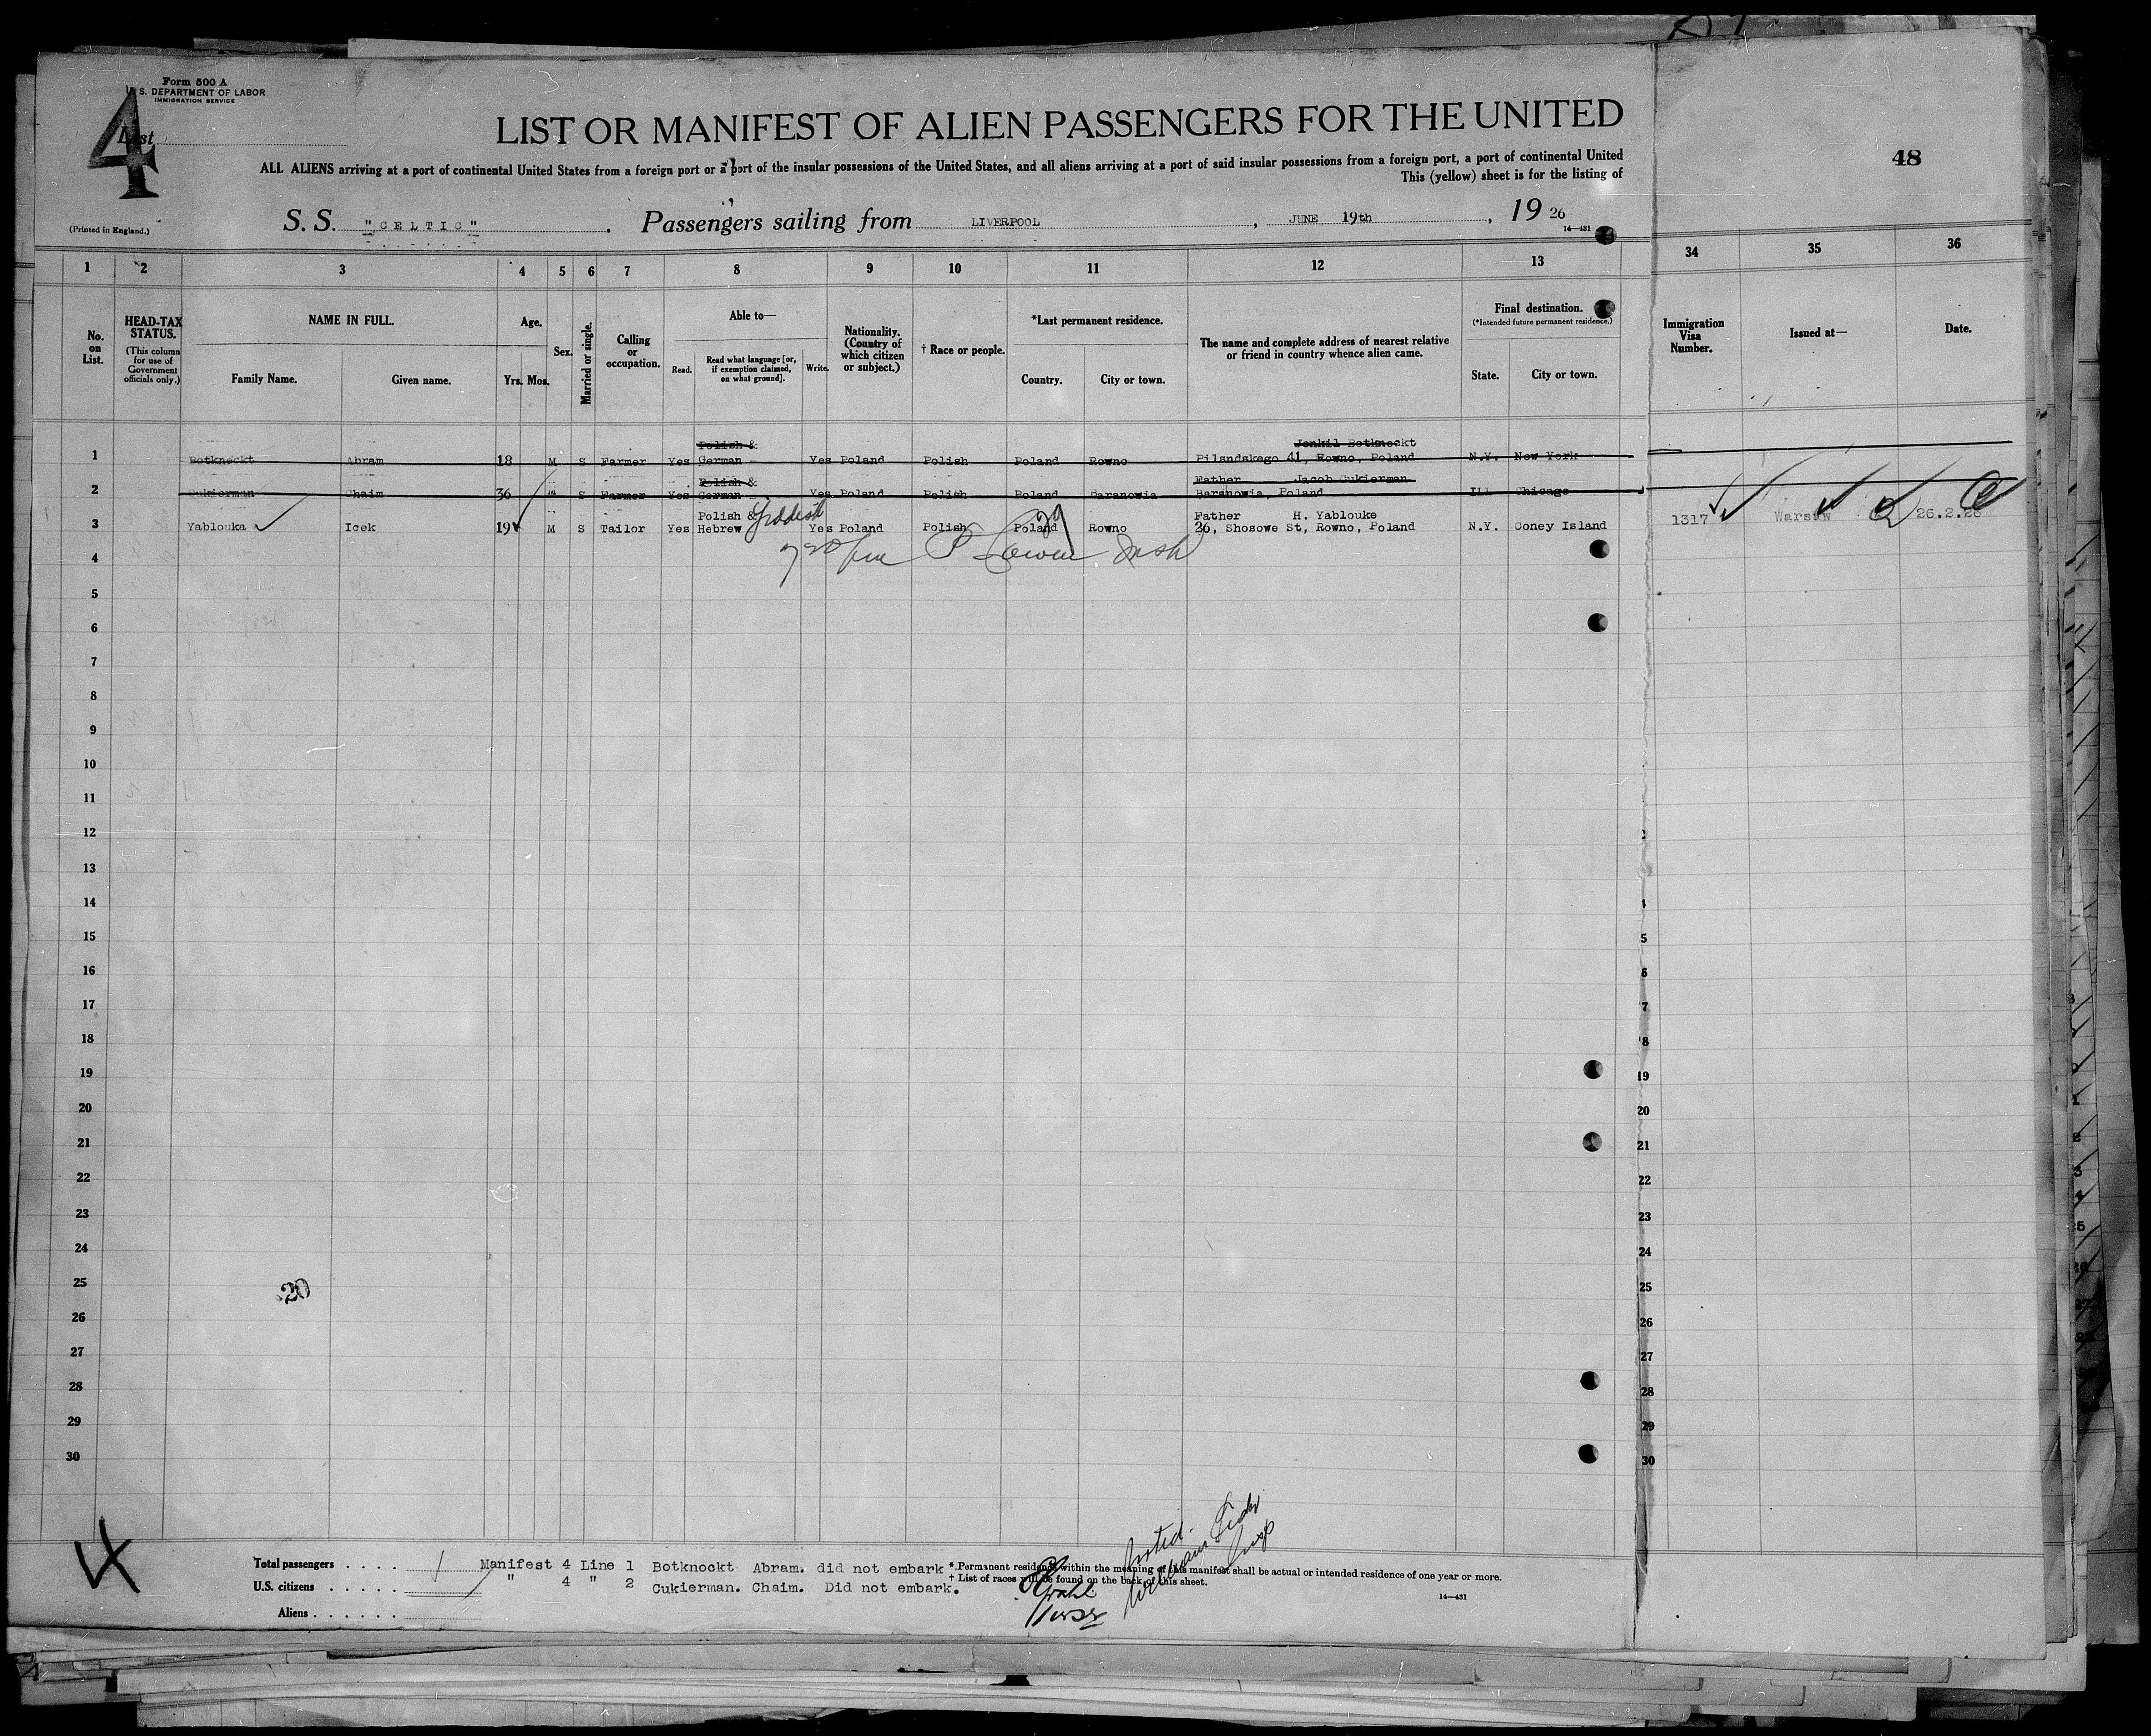 Form 500 A
U. S. DEPARTMENT OF LABOR
IMMIGRATION SERVICE
4
List
LIST OR MANIFEST OF ALIEN PASSENGERS FOR THE UNITED
48
ALL ALIENS arriving at a port of continental United States from a foreign port or a port of the insular possessions of the United States, and all aliens arriving at a port of said insular possessions from a foreign port, a port of continental United
This (yellow) sheet is for the listing of
(Printed in England.)
S. S. "CELTIC". Passengers sailing from LIVERPOOL, JUNE 19th, 1926
14—431
1 2 3 4 5 6 7 8 9 10 11 12 13 34 35 36
No. on List.
HEAD-TAX STATUS.
(This column for use of Government officials only.)
NAME IN FULL.
Family Name. Given name.
Age.
Yrs. Mos.
Sex.
Married or single.
Calling or occupation.
Able to—
Read. Read what language [or, if exemption claimed, on what ground]. Write.
Nationality. (Country of which citizen or subject.)
† Race or people.
*Last permanent residence.
Country. City or town.
The name and complete address of nearest relative or friend in country whence alien came.
Final destination.
(*Intended future permanent residence.)
State. City or town.
Immigration Visa Number.
Issued at—
Date.
Polish & Jenkil Botknockt
1 Botknockt Abram 18 M S Farmer Yes German Yes Poland Polish Poland Rowno Pilandskego 41, Rowno, Poland N.Y. New York
Polish & Father Jacob Cukierman
2 Cukierman Chaim 36 M S Farmer Yes German Yes Poland Polish Poland Baranowia Baranowia, Poland Ill Chicago
Polish & Yiddish Father H. Yablouke
3 Yablouka Icek 19 M S Tailor Yes Hebrew Yes Poland Polish Poland Rowno 26, Shosowe St, Rowno, Poland N.Y. Coney Island 1317 Warsaw 26.2.26
4
5
6
7
8
9
10
11
12
13
14
15 5
16 6
17 7
18 8
19 19
20 20
21 21
22 22
23 23
24 24
25 25
20
26 26
27 27
28 28
29 29
30 30
Total passengers . . . .
U.S. citizens . . . . .
Aliens . . . . . .
Manifest 4 Line 1 Botknockt Abram. did not embark
" 4 " 2 Cukierman. Chaim. Did not embark.
* Permanent residence within the meaning of this manifest shall be actual or intended residence of one year or more.
† List of races will be found on the back of this sheet.
14—431
Purser